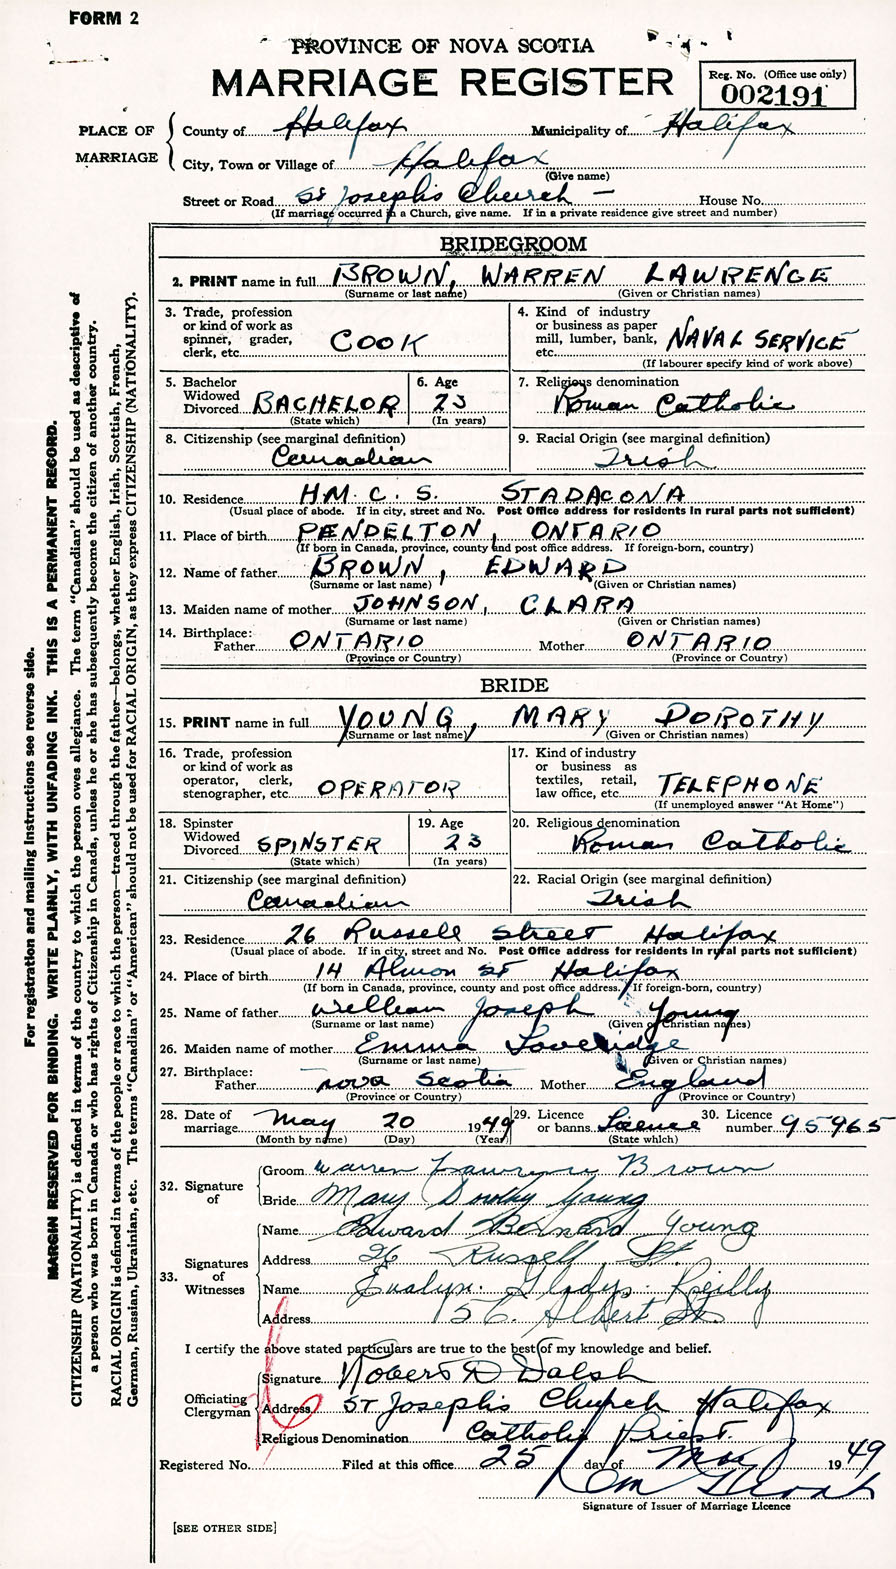 FORM 2
PROVINCE OF NOVA SCOTIA
MARRIAGE REGISTER
Reg. No. (Office use only)
002191
PLACE OF MARRIAGE
County of Halifax Municipality of Halifax
City, Town or Village of Halifax
(Give name)
Street or Road St Joseph's Church — House No.
(If marriage occurred in a Church, give name. If in a private residence give street and number)
BRIDEGROOM
2. PRINT name in full BROWN, WARREN LAWRENCE
(Surname or last name) (Given or Christian names)
3. Trade, profession
or kind of work as
spinner, grader,
clerk, etc. COOK
4. Kind of industry
or business as paper
mill, lumber, bank,
etc. NAVAL SERVICE
(If labourer specify kind of work above)
5. Bachelor
Widowed
Divorced BACHELOR
(State which)
6. Age
23
(In years)
7. Religious denomination
Roman Catholic
8. Citizenship (see marginal definition)
Canadian
9. Racial Origin (see marginal definition)
Irish
10. Residence H.M.C.S. STADACONA
(Usual place of abode. If in city, street and No. Post Office address for residents in rural parts not sufficient)
11. Place of birth PENDELTON, ONTARIO
(If born in Canada, province, county and post office address. If foreign-born, country)
12. Name of father BROWN, EDWARD
(Surname or last name) (Given or Christian names)
13. Maiden name of mother JOHNSON, CLARA
(Surname or last name) (Given or Christian names)
14. Birthplace:
Father ONTARIO Mother ONTARIO
(Province or Country) (Province or Country)
BRIDE
15. PRINT name in full YOUNG, MARY DOROTHY
(Surname or last name) (Given or Christian names)
16. Trade, profession
or kind of work as
operator, clerk,
stenographer, etc. OPERATOR
17. Kind of industry
or business as
textiles, retail,
law office, etc. TELEPHONE
(If unemployed answer "At Home")
18. Spinster
Widowed
Divorced SPINSTER
(State which)
19. Age
23
(In years)
20. Religious denomination
Roman Catholic
21. Citizenship (see marginal definition)
Canadian
22. Racial Origin (see marginal definition)
Irish
23. Residence 26 Russell Street Halifax
(Usual place of abode. If in city, street and No. Post Office address for residents in rural parts not sufficient)
24. Place of birth 14 Almon St Halifax
(If born in Canada, province, county and post office address. If foreign-born, country)
25. Name of father William Joseph Young
(Surname or last name) (Given or Christian names)
26. Maiden name of mother Emma Loveridge
(Surname or last name) (Given or Christian names)
27. Birthplace:
Father Nova Scotia Mother England
(Province or Country) (Province or Country)
28. Date of
marriage May 20 1949
(Month by name) (Day) (Year)
29. Licence
or banns Licence
(State which)
30. Licence
number 95965
32. Signature of
Groom Warren Lawrence Brown
Bride Mary Dorothy Young
33. Signatures of Witnesses
Name Edward Bernard Young
Address 26 Russell St.
Name Evalyn Gladys Reilly
Address 56 Albert St
I certify the above stated particulars are true to the best of my knowledge and belief.
Officiating Clergyman
Signature Robert D Walsh
Address St Joseph's Church Halifax
Religious Denomination Catholic Priest.
Registered No. Filed at this office 25 day of May 1949
Signature of Issuer of Marriage Licence
[SEE OTHER SIDE]
For registration and mailing instructions see reverse side.
MARGIN RESERVED FOR BINDING. WRITE PLAINLY, WITH UNFADING INK. THIS IS A PERMANENT RECORD.
CITIZENSHIP (NATIONALITY) is defined in terms of the country to which the person owes allegiance. The term "Canadian" should be used as descriptive of
a person who was born in Canada or who has rights of Citizenship in Canada, unless he or she has subsequently become the citizen of another country.
RACIAL ORIGIN is defined in terms of the people or race to which the person—traced through the father—belongs, whether English, Irish, Scottish, French,
German, Russian, Ukrainian, etc. The terms "Canadian" or "American" should not be used for RACIAL ORIGIN, as they express CITIZENSHIP (NATIONALITY).